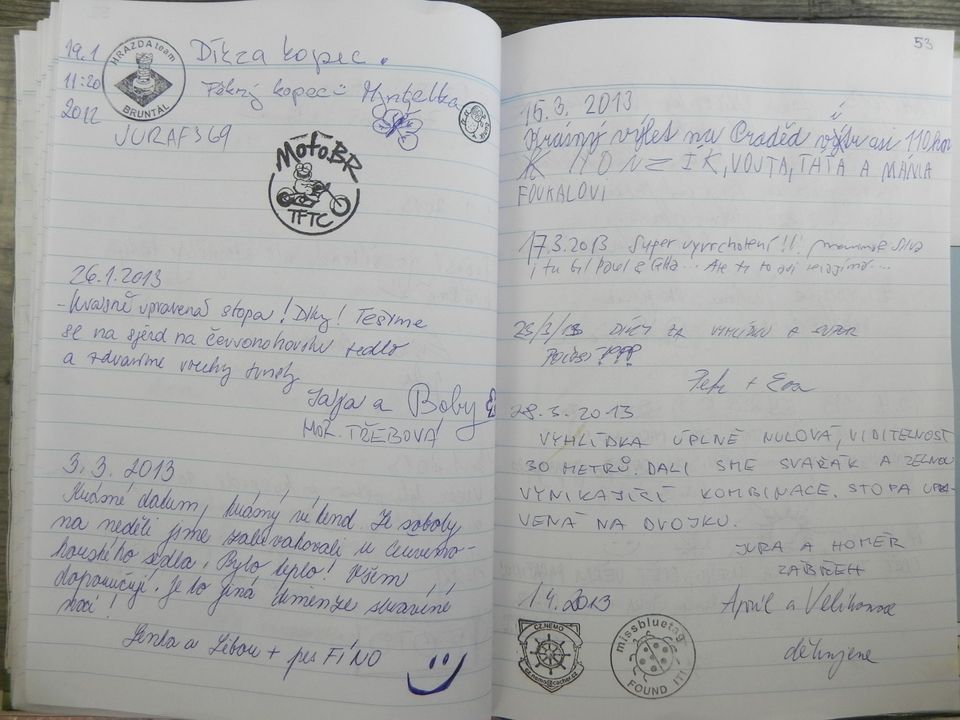 19.1
11:20
2012
HRAZDA team
BRUNTÁL
Dík za kopec.
Pěkný kopec
JURAF369
Moto.BR
TFTC
26.1.2013
- Krásně upravená stopa! Díky! Těšíme
se na sjezd na červonohorské sedlo
a zdravíme všechny
Jája a Boby
MOR. TŘEBOVÁ
3.3. 2013
Krásné datum, krásný víkend. Ze soboty
na neděli jsme zabivakovali u Červeno-
horského sedla. Bylo teplo! Všem
doporučuji. Je to jiná dimenze strávené
noci!
Lenka a Libor + pes FÍNO
53
15.3. 2013
Krásný výlet na Praděd asi 110km
HONZÍK, VOJTA, TÁTA A MÁMA
FOUKALOVI
17.3.2013 Super vyvrcholení!!
i tu byl Pavel
DÍKY ZA VYHLÍDKU A SUPER
POČASÍ !???
Petr + Eva
28.3.2013
VYHLÍDKA ÚPLNĚ NULOVÁ, VIDITELNOST
30 METRŮ. DALI SME SVAŘÁK A ZELNOU
VYNIKAJÍCÍ KOMBINACE. STOPA UPRA-
VENÁ NA DVOJKU.
JURA A HOMÉR
ZÁBŘEH
1.4.2013
Apríl a Velikonoce
děkujeme
CZ.NEMO
cz.nemo@cacher.cz
missbluetag
FOUND IT!